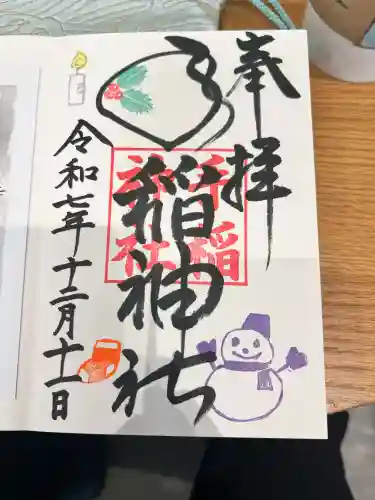 奉拝
手稲神社
手稲
神社
令和七年十二月十一日